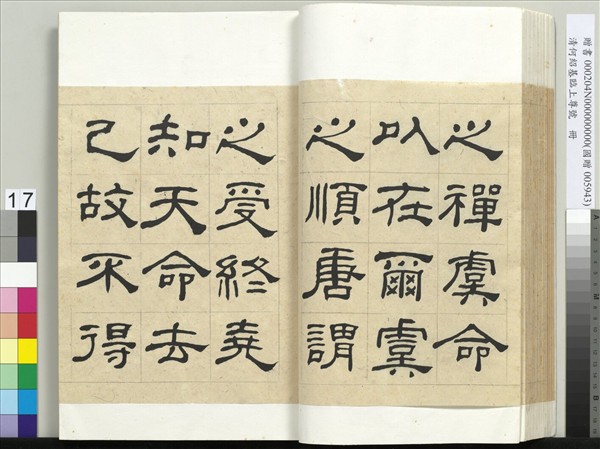 之禪虞命
以在爾虞
之順唐謂
之受終堯
知天命去
己故不得
贈書 000204N000000000(國贈 005943)
清何紹基臨上尊號 冊
17
A
B